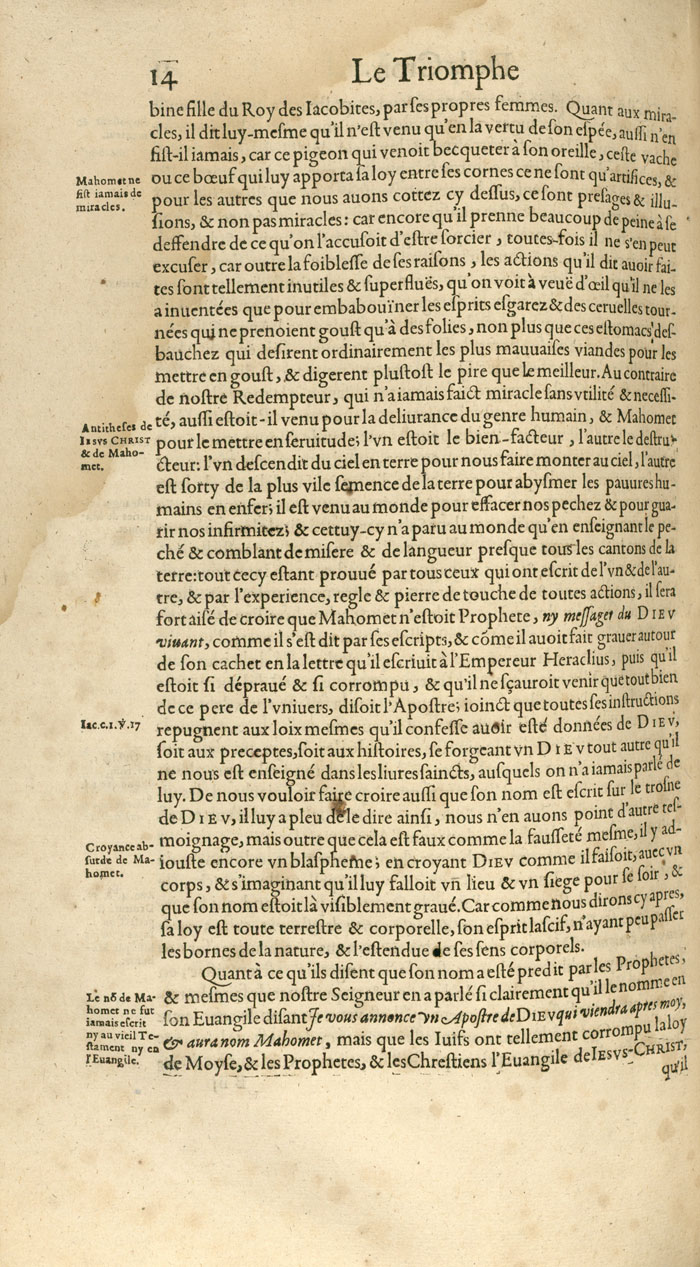 14 Le Triomphe
bine fille du Roy des Iacobites, par ses propres femmes. Quant aux mira-
cles, il dit luy-mesme qu'il n'est venu qu'en la vertu de son espée, aussi n'en
fist-il iamais, car ce pigeon qui venoit becqueter à son oreille, ceste vache
Mahomet ne
fist iamais de
miracles.
ou ce bœuf qui luy apporta sa loy entre ses cornes ce ne sont qu'artifices, &
pour les autres que nous auons cottez cy dessus, ce sont presages & illu-
sions, & non pas miracles: car encore qu'il prenne beaucoup de peine à se
deffendre de ce qu'on l'accusoit d'estre sorcier, toutes-fois il ne s'en peut
excuser, car outre la foiblesse de ses raisons, les actions qu'il dit auoir fai-
tes sont tellement inutiles & superfluës, qu'on voit à veuë d'œil qu'il ne les
a inuentées que pour embabouïner les esprits esgarez & des ceruelles tour-
nées qui ne prenoient goust qu'à des folies, non plus que ces estomacs des-
bauchez qui desirent ordinairement les plus mauuaises viandes pour les
mettre en goust, & digerent plustost le pire que le meilleur. Au contraire
de nostre Redempteur, qui n'a iamais faict miracle sans vtilité & necessi-
Antitheses de
IESVS CHRIST
& de Maho-
met.
té, aussi estoit-il venu pour la deliurance du genre humain, & Mahomet
pour le mettre en seruitude; l'vn estoit le bien-facteur, l'autre le destru-
cteur: l'vn descendit du ciel en terre pour nous faire monter au ciel, l'autre
est sorty de la plus vile semence de la terre pour abysmer les pauures hu-
mains en enfer; il est venu au monde pour effacer nos pechez & pour gua-
rir nos infirmitez; & cettuy-cy n'a paru au monde qu'en enseignant le pe-
ché & comblant de misere & de langueur presque tous les cantons de la
terre: tout cecy estant prouué par tous ceux qui ont escrit de l'vn & de l'au-
tre, & par l'experience, regle & pierre de touche de toutes actions, il sera
fort aisé de croire que Mahomet n'estoit Prophete, ny messager du DIEV
viuant, comme il s'est dit par ses escripts, & cõme il auoit fait grauer autour
de son cachet en la lettre qu'il escriuit à l'Empereur Heraclius, puis qu'il
estoit si dépraué & si corrompu, & qu'il ne sçauroit venir que tout bien
de ce pere de l'vniuers, disoit l'Apostre; ioinct que toutes ses instructions
Iac.c.1.℣.17
repugnent aux loix mesmes qu'il confesse auoir esté données de DIEV,
soit aux preceptes, soit aux histoires, se forgeant vn DIEV tout autre qu'il
ne nous est enseigné dans les liures saincts, ausquels on n'a iamais parlé de
luy. De nous vouloir faire croire aussi que son nom est escrit sur le trosne
de DIEV, il luy a pleu de le dire ainsi, nous n'en auons point d'autre tes-
Croyance ab-
surde de Ma-
homet.
moignage, mais outre que cela est faux comme la fausseté mesme, il y ad-
iouste encore vn blaspheme; en croyant DIEV comme il faisoit, auec vn
corps, & s'imaginant qu'il luy falloit vn lieu & vn siege pour se soir, &
que son nom estoit là visiblement graué. Car comme nous dirons cy apres,
sa loy est toute terrestre & corporelle, son esprit lascif, n'ayant peu passer
les bornes de la nature, & l'estendue de ses sens corporels.
Quant à ce qu'ils disent que son nom a esté predit par les Prophetes,
Le nõ de Ma-
homet ne fut
iamais escrit
ny au vieil Te-
stament ny en
l'Euangile.
& mesmes que nostre Seigneur en a parlé si clairement qu'il le nomme en
son Euangile disant Je vous annonce vn Apostre de DIEV qui viendra apres moy,
& aura nom Mahomet, mais que les Iuifs ont tellement corrompu la loy
de Moyse, & les Prophetes, & les Chrestiens l'Euangile de IESVS-CHRIST,
qu'il